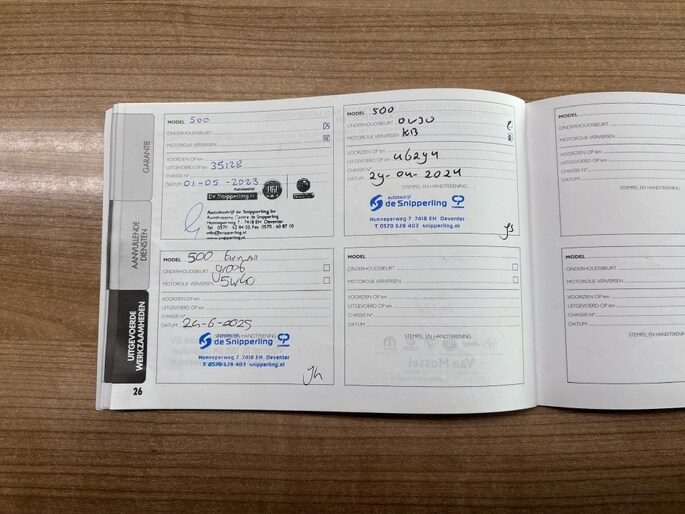 GARANTIE
AANVULLENDE
DIENSTEN
UITGEVOERDE
WERKZAAMHEDEN
26
MODEL 500
ONDERHOUDSBEURT
MOTOROLIE VERVERSEN
VOORZIEN OP km
UITGEVOERD OP km 35128
CHASSIS N°
DATUM 01-05-2023
Autobedrijf
De Snipperling
Autobedrijf de Snipperling bv
Hunneperweg 7 - 7418 EH Deventer
info@snipperling.nl
www.snipperling.nl
MODEL 500
ONDERHOUDSBEURT
MOTOROLIE VERVERSEN
VOORZIEN OP km
UITGEVOERD OP km
CHASSIS N°
DATUM 29-04-2024
STEMPEL EN HANDTEKENING
autobedrijf
de Snipperling
Hunneperweg 7 7418 EH Deventer
T 0570 628 403 snipperling.nl
MODEL 500
ONDERHOUDSBEURT groot
MOTOROLIE VERVERSEN 5W40
VOORZIEN OP km
UITGEVOERD OP km
CHASSIS N°
DATUM 24-6-2025
STEMPEL EN HANDTEKENING
de Snipperling
Hunneperweg 7 7418 EH Deventer
T 0570 628 403 snipperling.nl
MODEL
ONDERHOUDSBEURT
MOTOROLIE VERVERSEN
VOORZIEN OP km
UITGEVOERD OP km
CHASSIS N°
DATUM
STEMPEL EN HANDTEKENING
Van Mossel
MODEL
ONDERHOUDSBEURT
MOTOROLIE VERVERSEN
VOORZIEN OP km
UITGEVOERD OP km
CHASSIS N°
DATUM
MODEL
ONDERHOUDSBEURT
MOTOROLIE VERVERSEN
VOORZIEN OP km
UITGEVOERD OP km
CHASSIS N°
DATUM